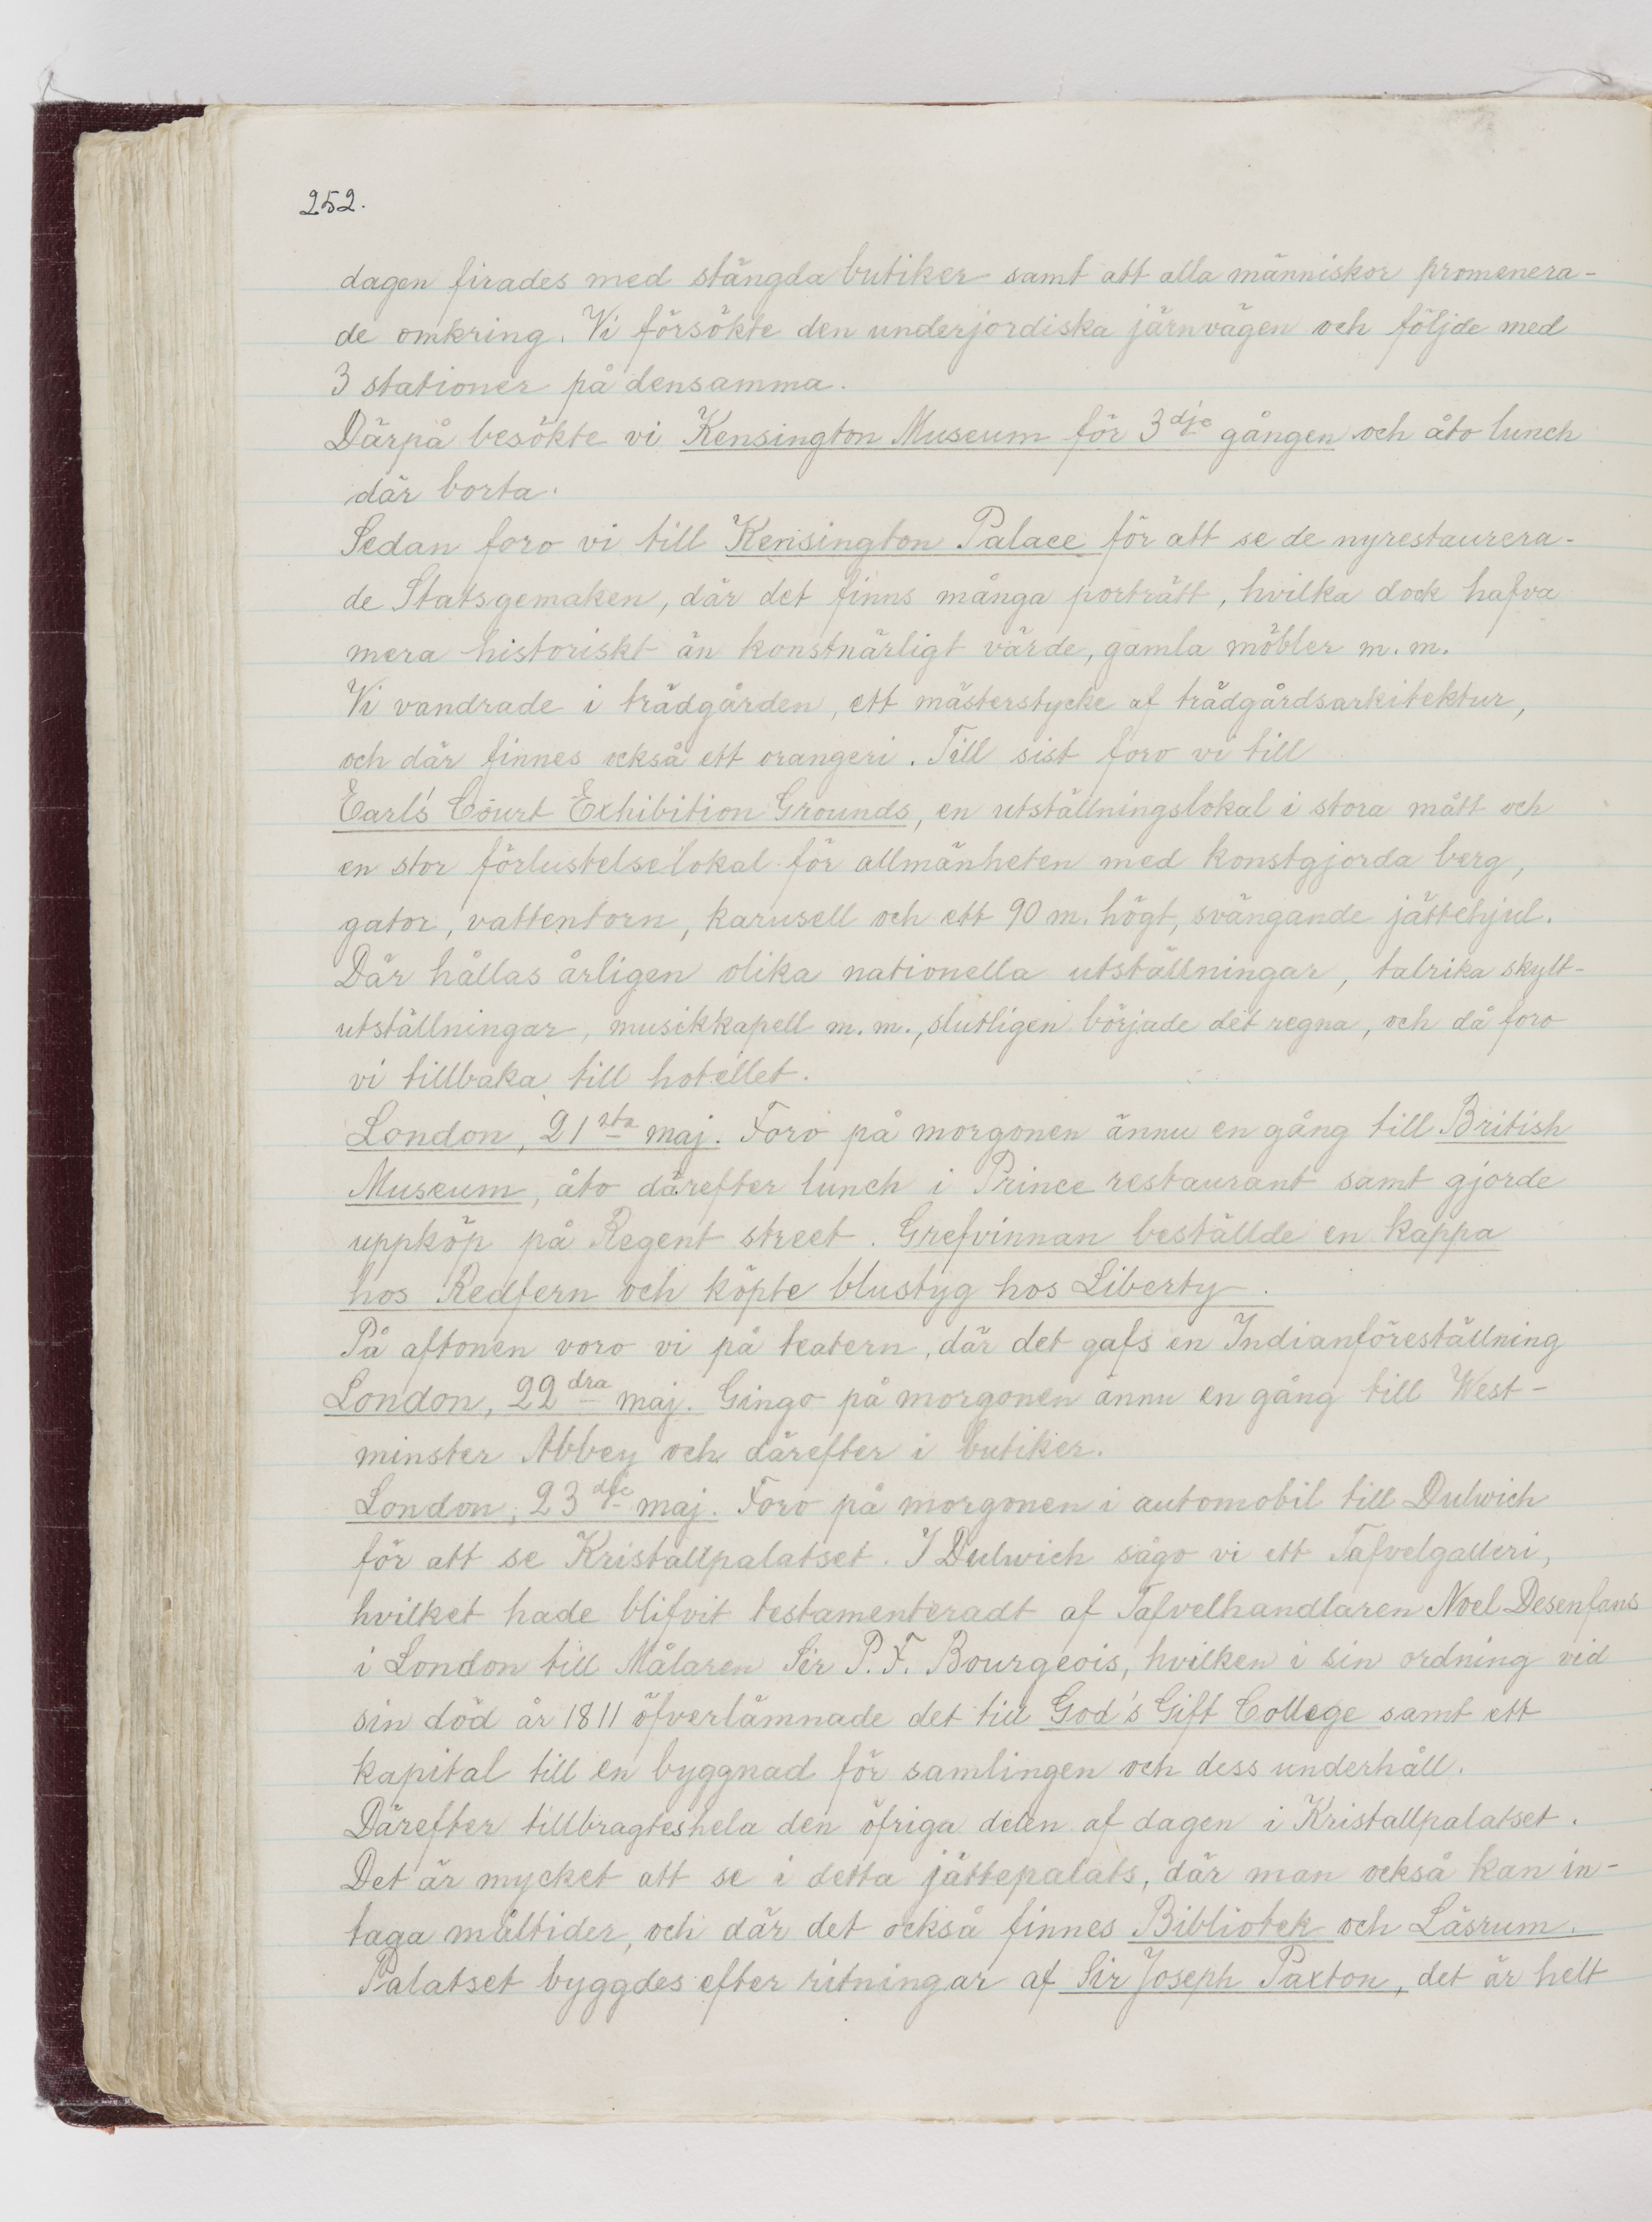 252.
dagen firades med stängda butiker samt att alla människor promenera-
de omkring. Vi försökte den underjordiska järnvägen och följde med
3 stationer på densamma.
Därpå besökte vi Kensington Museum för 3dje gången och åto lunch
där borta.
Sedan foro vi till Kensington Palace för att se de nyrestaurera-
de Statsgemaken, där det finns många porträtt, hvilka dock hafva
mera historiskt än konstnärligt värde, gamla möbler m. m.
Vi vandrade i trädgården, ett mästerstycke af trädgårdsarkitektur,
och där finnes också ett orangeri. Till sist foro vi till
Earl's Court Exhibition Grounds, en utställningslokal i stora mått och
en stor förlustelselokal för allmänheten med konstgjorda berg,
gator, vattentorn, karusell och ett 90 m. högt, svängande jättehjul.
Där hållas årligen olika nationella utställningar, talrika skylt-
utställningar, musikkapell m. m., slutligen började det regna, och då foro
vi tillbaka till hotellet.
London, 21sta maj. Foro på morgonen ännu en gång till British
Museum, åto därefter lunch i Prince restaurant samt gjorde
uppköp på Regent street. Grefvinnan beställde en kappa
hos Redfern och köpte blustyg hos Liberty.
På aftonen voro vi på teatern, där det gafs en Indianföreställning
London, 22dra maj. Gingo på morgonen ännu en gång till West-
minster Abbey och därefter i butiker.
London, 23dje maj. Foro på morgonen i automobil till Dulwich
för att se Kristallpalatset. I Dulwich sågo vi ett Tafvelgalleri,
hvilket hade blifvit testamenteradt af Tafvelhandlaren Noel Desenfans
i London till Målaren Sir P. F. Bourgeois, hvilken i sin ordning vid
sin död år 1811 öfverlämnade det till God's Gift College samt ett
kapital till en byggnad för samlingen och dess underhåll.
Därefter tillbragtes hela den öfriga delen af dagen i Kristallpalatset.
Det är mycket att se i detta jättepalats, där man också kan in-
taga måltider, och där det också finnes Bibliotek och Läsrum.
Palatset byggdes efter ritningar af Sir Joseph Paxton, det är helt